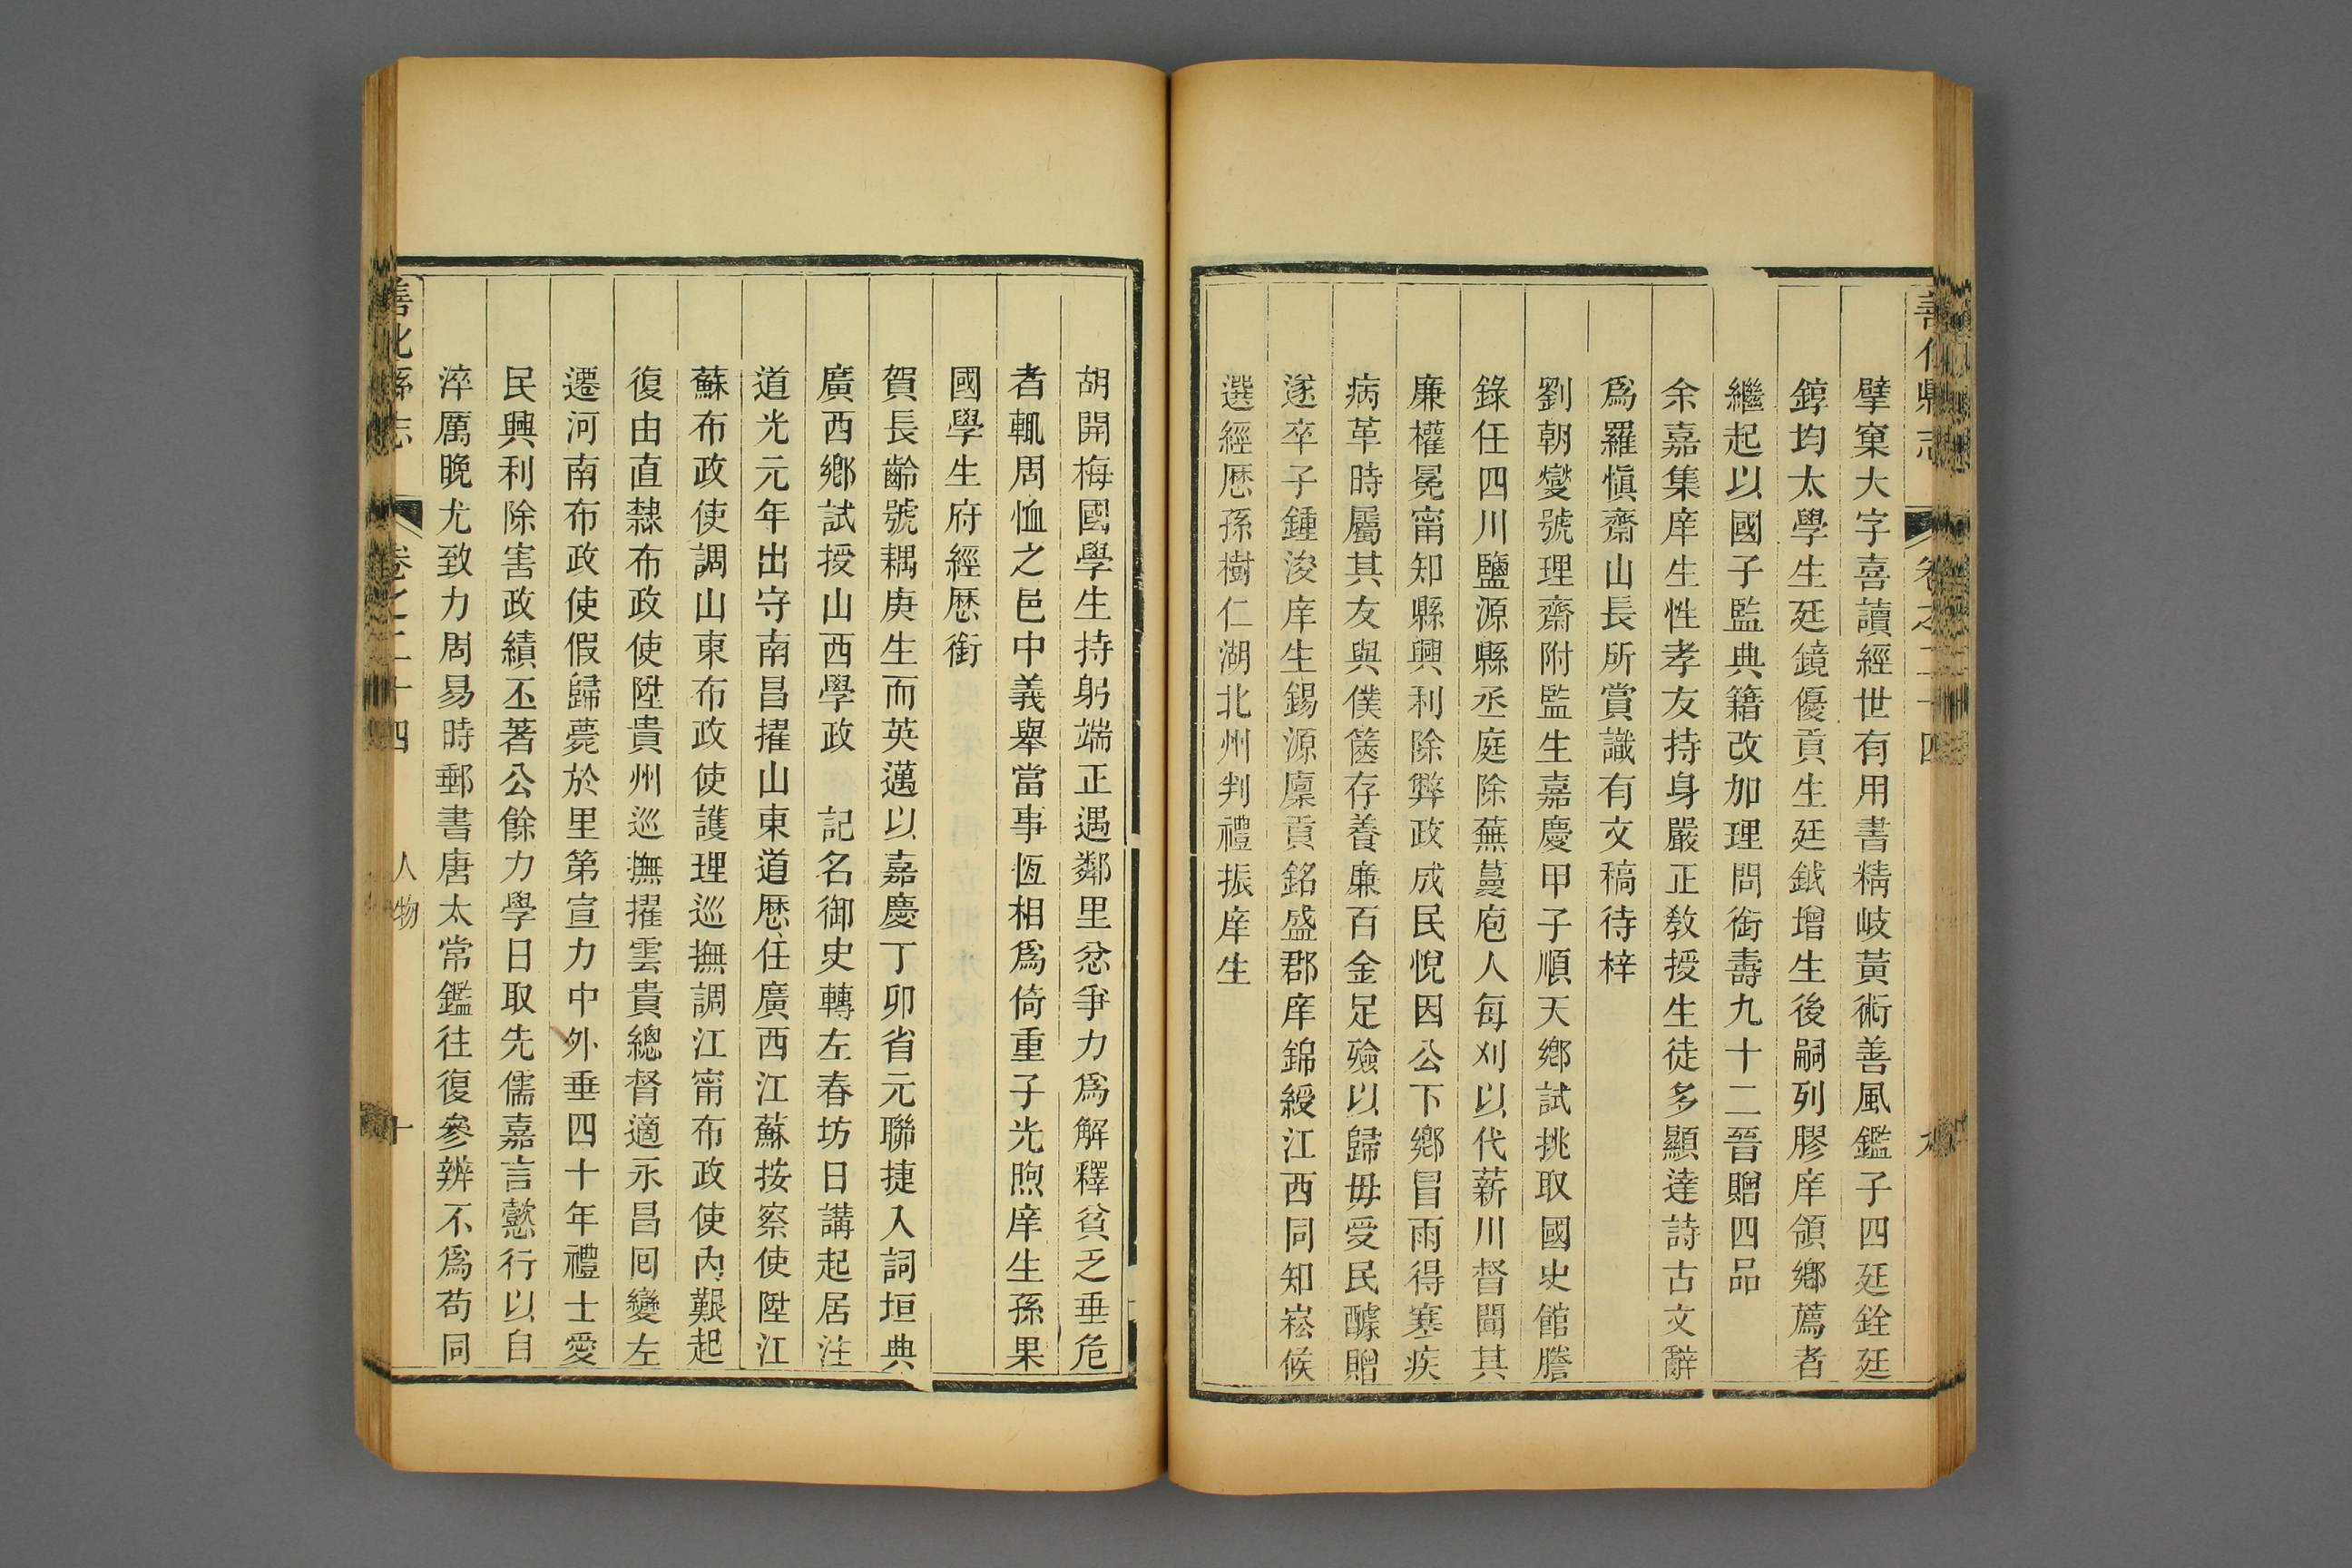 善化縣志
卷之二十四
九
擘窠大字喜讀經世有用書精岐黃術善風鑑子四廷銓廷
錞均太學生廷鏡優貢生廷鉞增生後嗣列膠庠領鄉薦者
繼起以國子監典籍改加理問銜壽九十二晉贈四品
余嘉集庠生性孝友持身嚴正敎授生徒多顯達詩古文辭
爲羅愼齋山長所賞識有文稿待梓
劉朝燮號理齋附監生嘉慶甲子順天鄉試挑取國史館謄
錄任四川鹽源縣丞庭除蕪蔓庖人每刈以代薪川督聞其
廉權冕甯知縣興利除弊政成民悅因公下鄉冒雨得塞疾
病革時屬其友與僕篋存養廉百金足殮以歸毋受民醵贈
遂卒子鍾浚庠生錫源廩貢銘盛郡庠錦綬江西同知崧候
選經歴孫樹仁湖北州判禮振庠生
胡開梅國學生持躬端正遇鄰里忿爭力爲解釋貧乏垂危
者輒周恤之邑中義舉當事恆相爲倚重子光煦庠生孫果
國學生府經歴銜
賀長齡號耦庚生而英邁以嘉慶丁卯省元聯捷入詞垣典
廣西鄉試授山西學政 記名御史轉左春坊日講起居注
道光元年出守南昌擢山東道歴任廣西江蘇按察使陞江
蘇布政使調山東布政使護理巡撫調江甯布政使內艱起
復由直隸布政使陞貴州巡撫擢雲貴總督適永昌囘變左
遷河南布政使假歸薨於里第宣力中外垂四十年禮士愛
民興利除害政績丕著公餘力學日取先儒嘉言懿行以自
淬厲晚尤致力周易時郵書唐太常鑑往復參辨不爲苟同
善化縣志
卷之二十四
人物
十